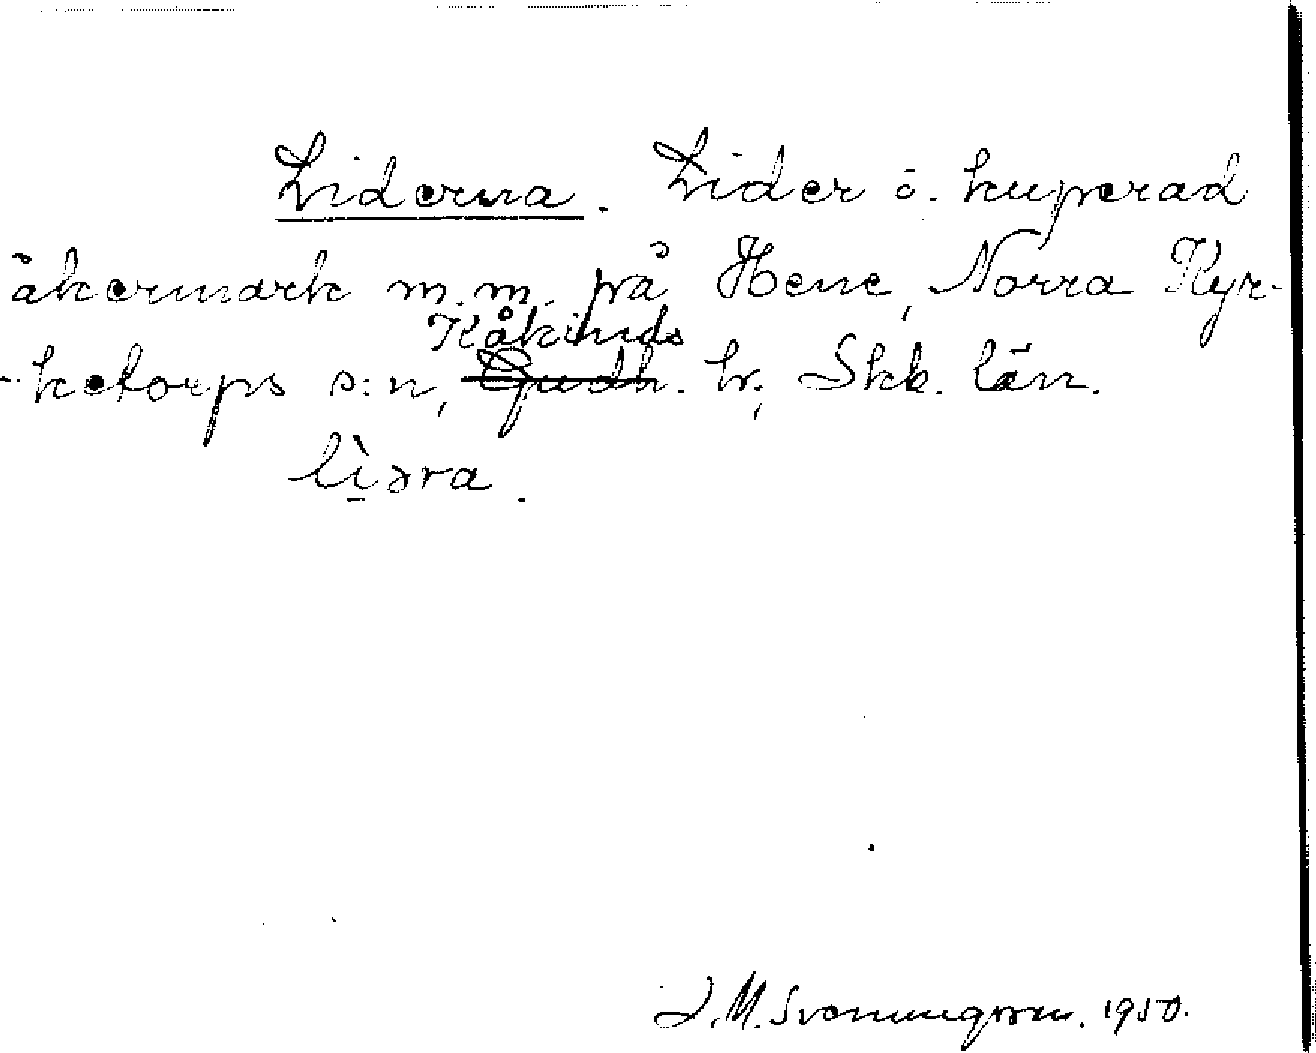 Liderna. Lider o. kuperad
åkermark m.m. på Hene, Norra Kyr-
Kåkinds
-ketorps s:n, Gudh. hr, Skb. län.
lìəra.
J. M. Svenningsson. 1950.